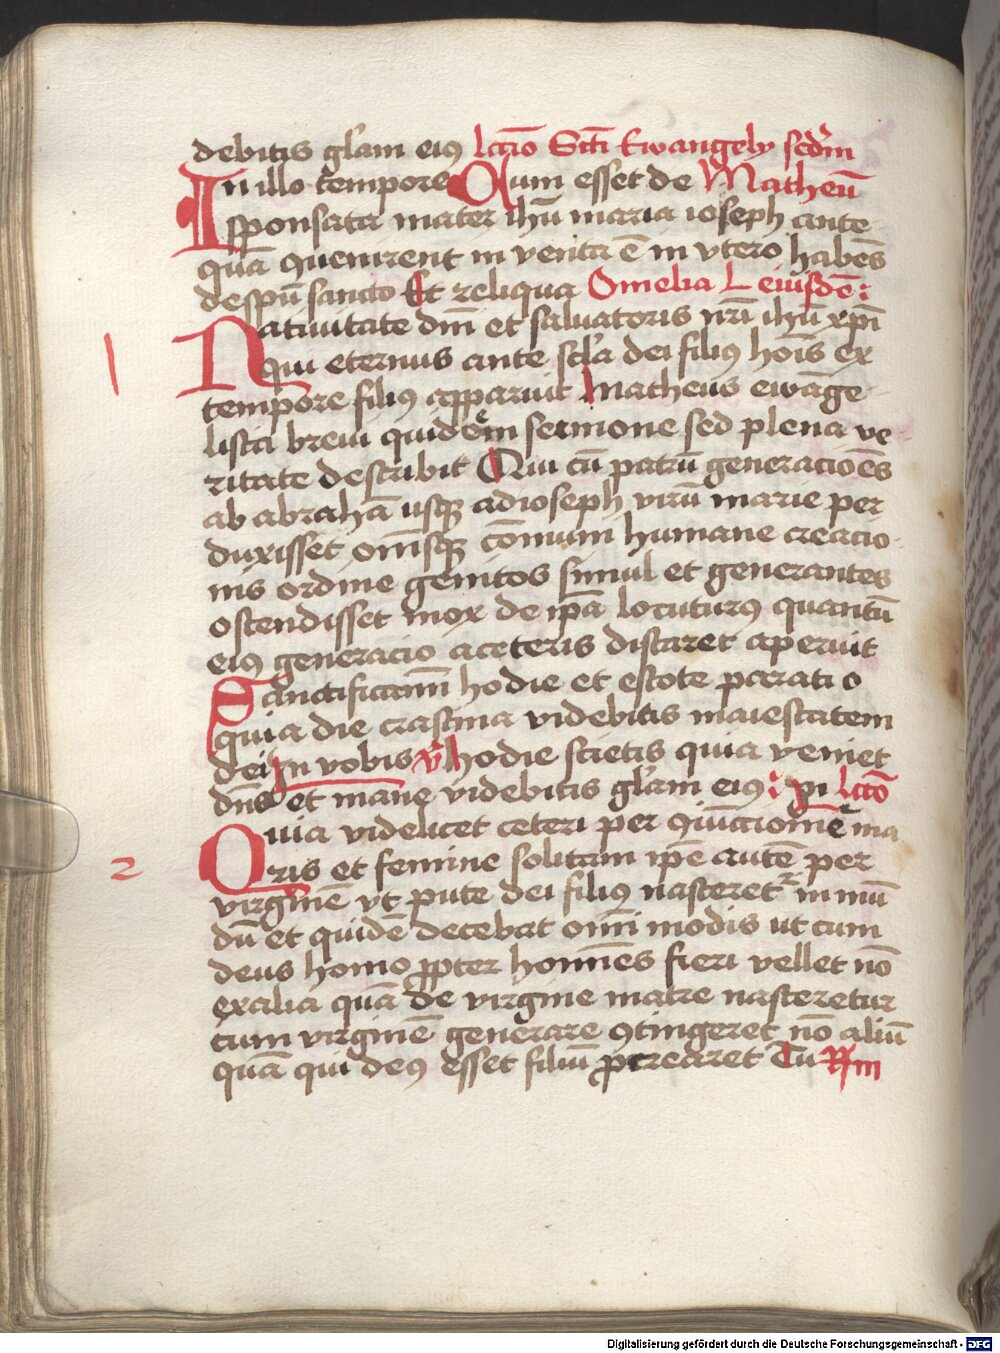 debitis gl'am eiꝯ lcc̄io Sc̄ti Ewangely scd'm
In illo tempore Qum esset de Matheū
sponsata mater ihū maria ioseph ante
quā ꝯuenirent in venta ē in vtero habēs
despū sancto Et reliqua Omelia L eiusdē:
1 Natiuitate dni et saluatoris nr̄i ihū xp̄i
qui eternus ante scl'a dei filiꝯ hoīs ex
tempore filiꝯ apparuit Matheus ewāge
lista breui quidem sermone sed plena ve
ritate describit Qui cū patrū generacioēs
ab abrahā usqꝫ adioseph virū marie per
duxisset om̄sqꝫ cōmuni humane creacio
nis ordine genitos simul et generantes
ostendisset mox de ip̄a locuturꝯ quantū
eiꝯ generacio aceteris distaret aperuit
Sanctificamī hodie et estote parati o
quia die crastina videbitis maiestatem
dei In vobis v̄ hodie scietis quia veniet
dn̄s et mane videbitis gl'am eiꝯ: pi lcc̄o
2 Quia videlicet ceteri per ꝯiūccionē ma
ris et femine solitam ip̄e autē per
virginē vt pute dei filiꝯ nasceret in mū
dū et quidē decebat om̄i modis ut cum
deus homo ꝓpter homīes fieri vellet nō
exalia quā de virgine matre nasceretur
cum virginē generare ꝯtingeret nō aliū
quā qui deꝯ esset filiū ꝓcrearet Tu Rm
Digitalisierung gefördert durch die Deutsche Forschungsgemeinschaft - DFG